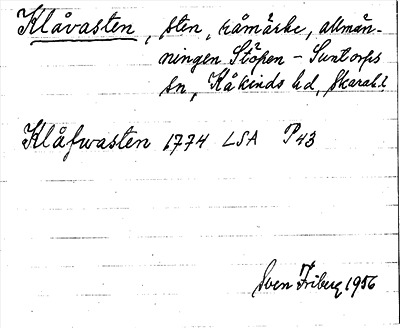 Klåvasten, sten, råmärke, allmän-
ningen Stöpen - Suntorps
sn, Kåkinds hd, Skarab.l
Klåfwasten 1774 LSA P43
Sven Friberg 1956